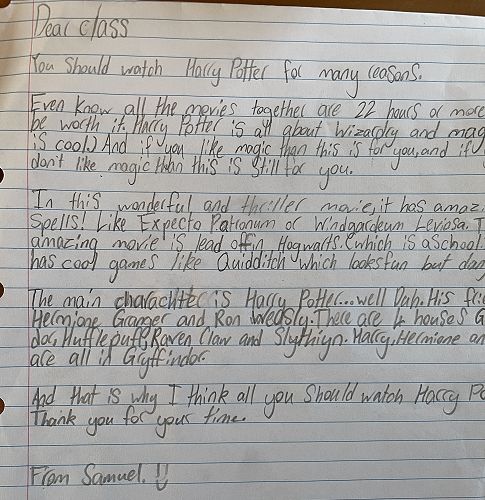 Dear class
You Should watch Harry Potter for many reasons.
Even know all the movies together are 22 hours or more
be worth it. Harry Potter is all about wizardry and mag
is cool.) And if you like magic than this is for you, and if
don't like magic than this is Still for you.
In this wonderful and thriller movie, it has amaz
Spells! Like Expecto Patronum or Windgardeum Leviosa. T
amazing movie is lead off in Hogwarts. (which is a School
has cool games like Quidditch which looks fun but dan
The main charachter is Harry Potter... well Duh. His frie
Hermione Granger and Ron Weasly. There are 4 houses G
dor, Hufflepuff, Raven Claw and Slythiyn. Harry, Hermione an
are all in Gryffindor.
And that is why I think all you Should watch Harry Po
Thank you for your time.
From Samuel. !!